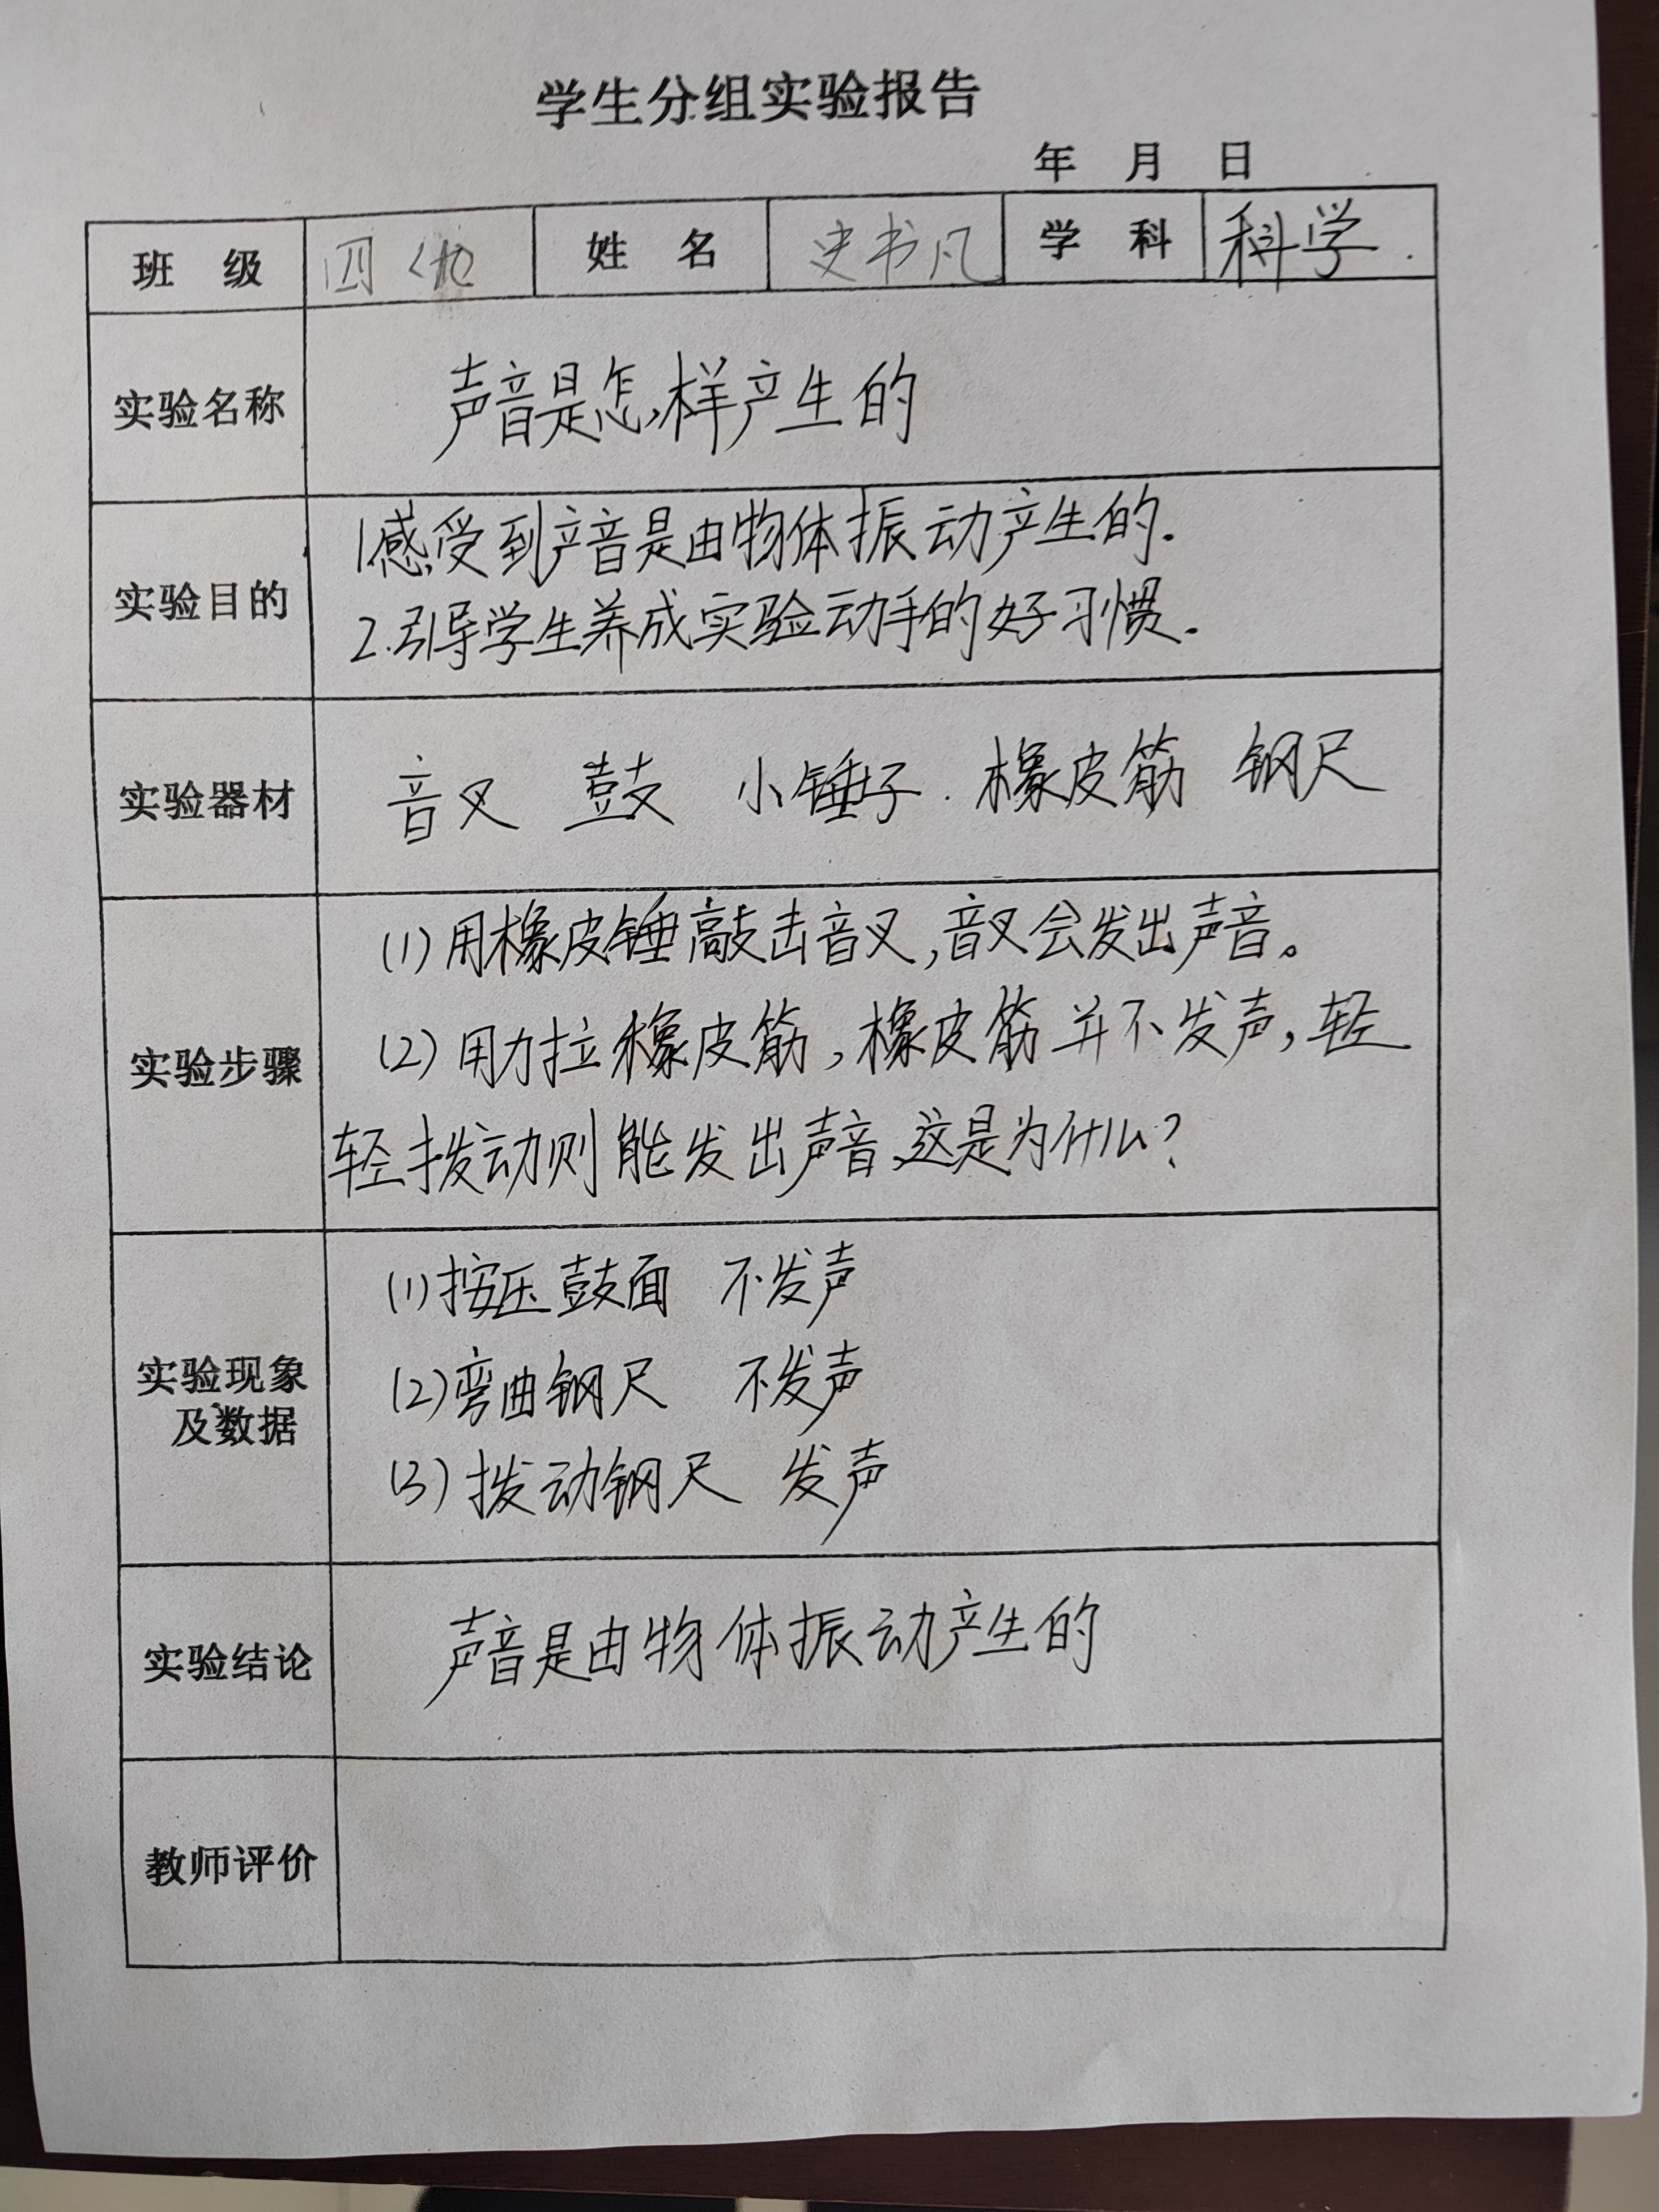 学生分组实验报告
年 月 日
班 级 四 姓 名 史书凡 学 科 科学.
实验名称 声音是怎样产生的
实验目的 1感受到产音是由物体振动产生的.
2.引导学生养成实验动手的好习惯.
实验器材 音叉 鼓 小锤子. 橡皮筋 钢尺
(1)用橡皮锤敲击音叉,音叉会发出声音。
实验步骤 (2)用力拉橡皮筋,橡皮筋并不发声,轻
轻拨动则能发出声音,这是为什么?
(1)按压鼓面 不发声
实验现象 (2)弯曲钢尺 不发声
及数据
(3)拨动钢尺 发声
实验结论 声音是由物体振动产生的
教师评价